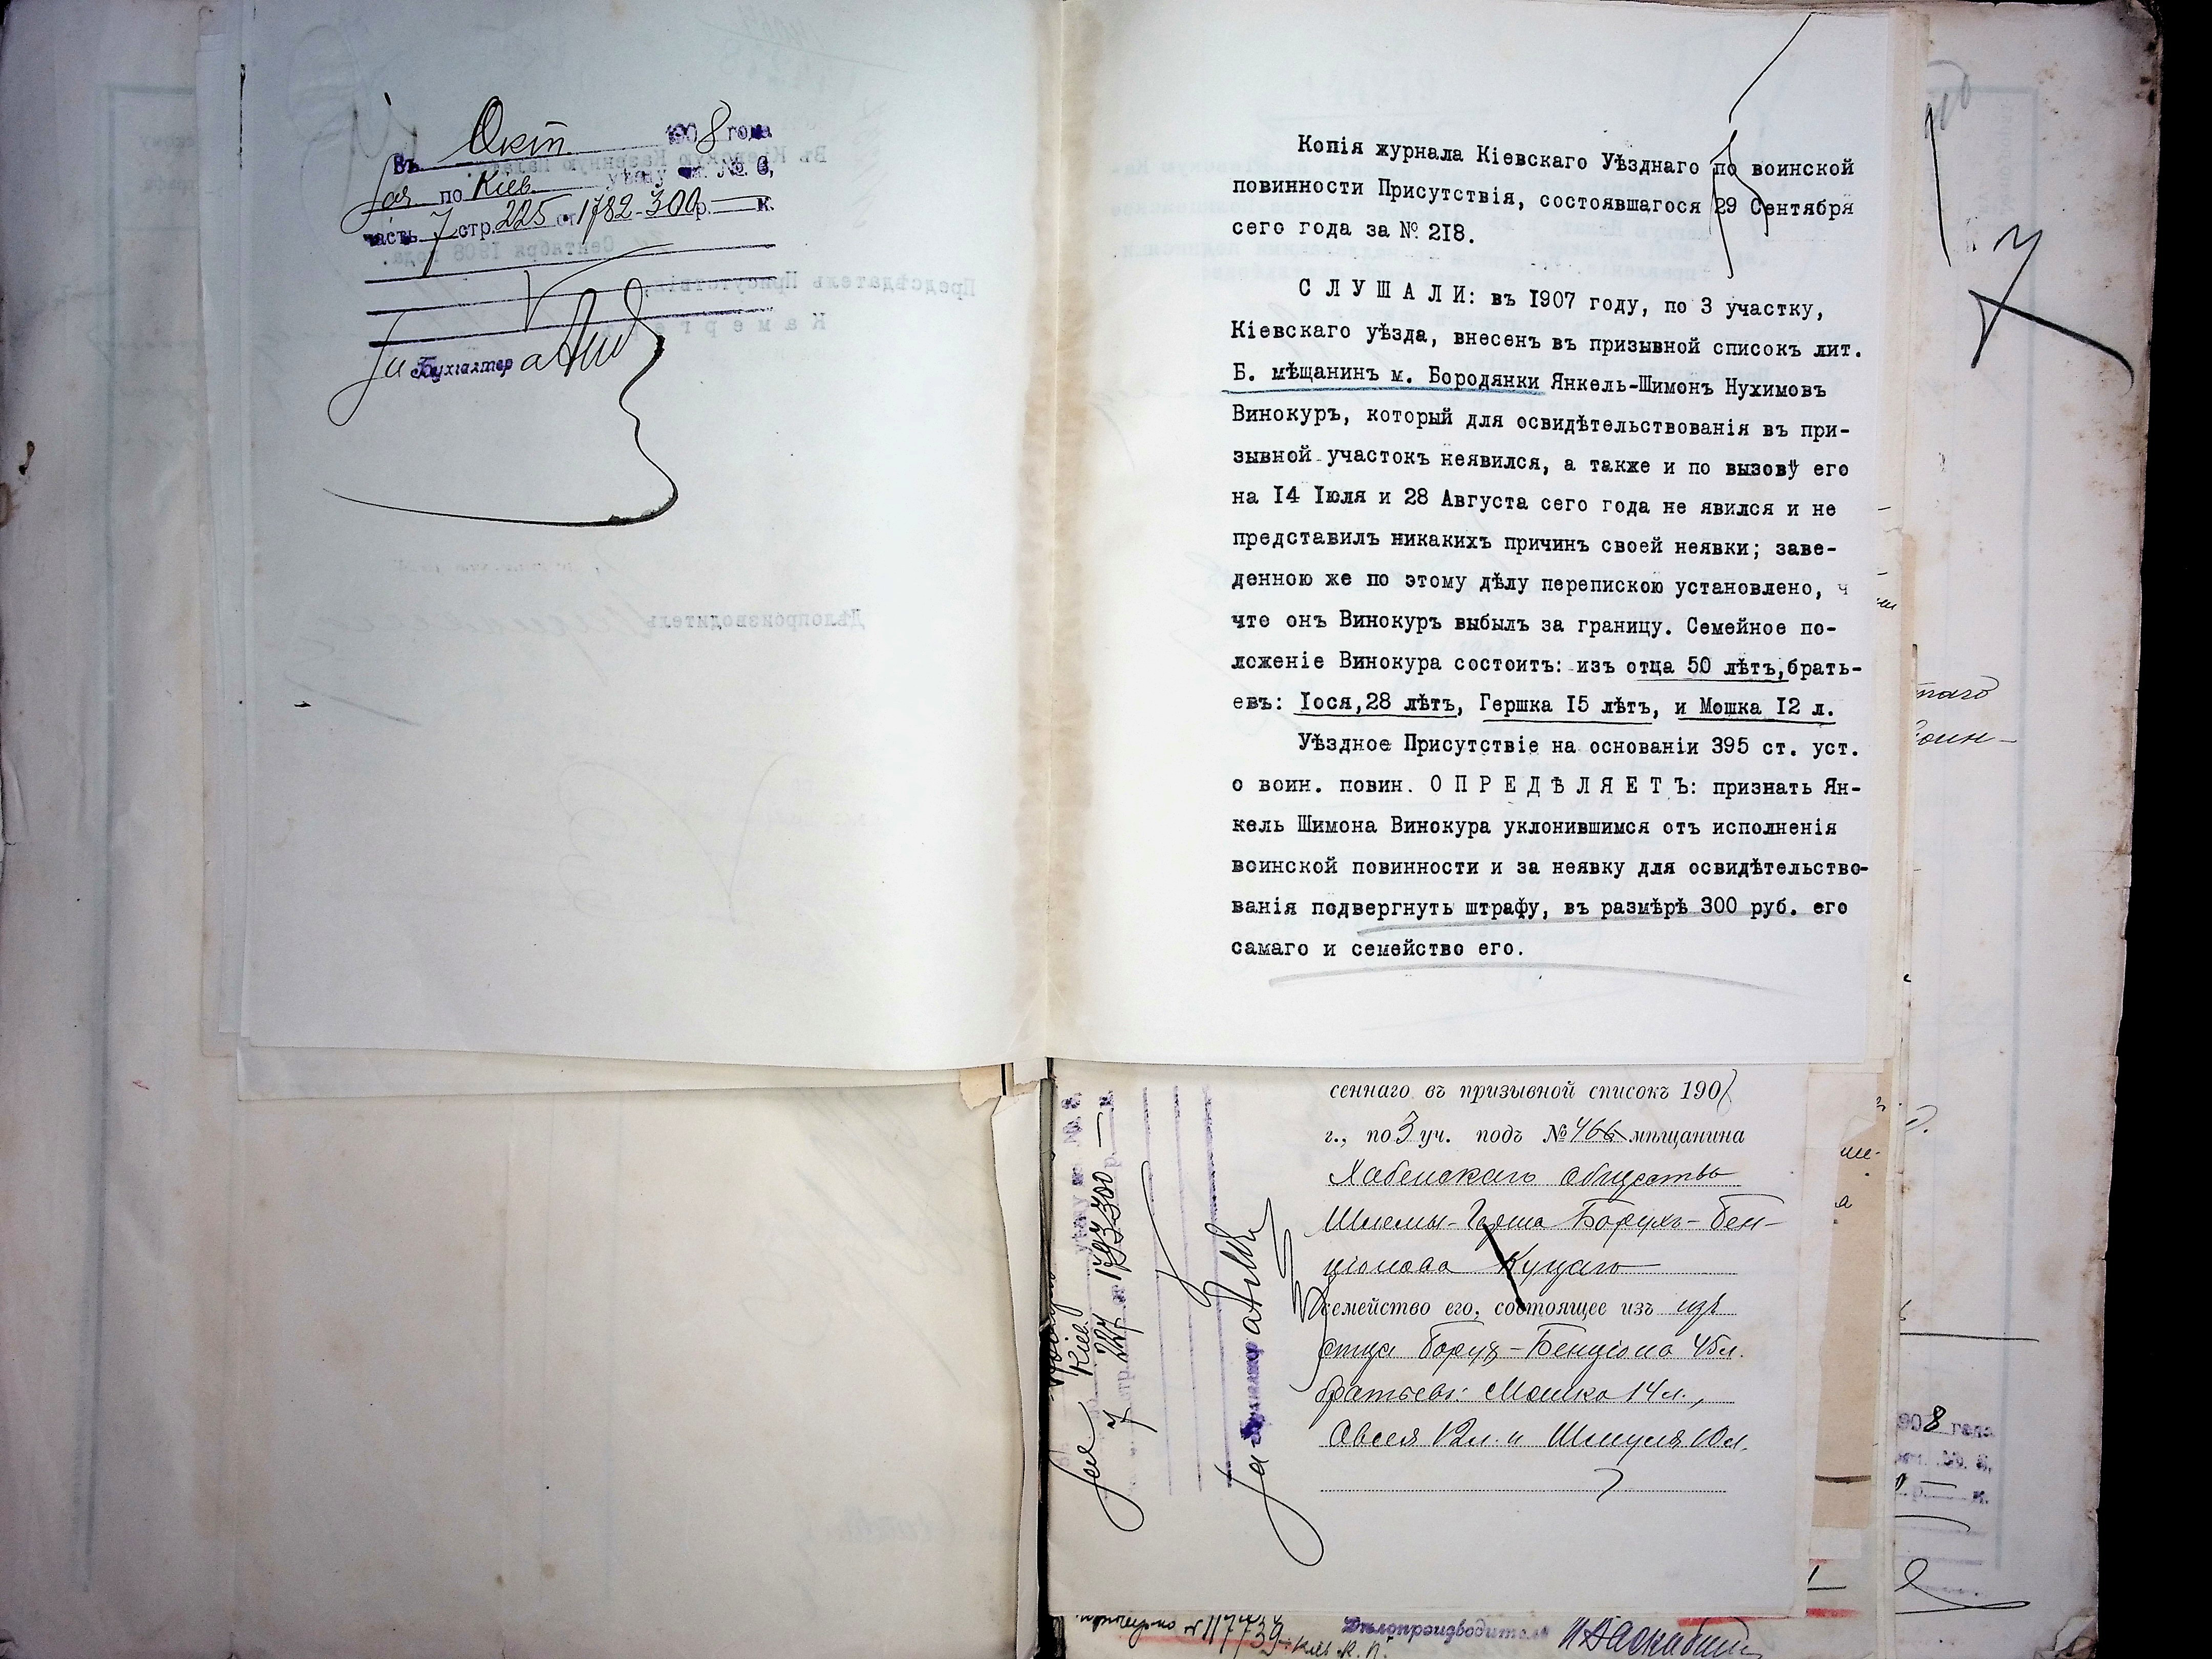 Окт 1908 года
Въ
по Кіев. уѣзду № 6,
часть 7 стр. 225 ст. 1782-300 р. — к.
Бухгалтер
Копія журнала Кіевскаго Уѣзднаго по воинской
повинности Присутствія, состоявшагося 29 Сентября
сего года за № 218.
С Л У Ш А Л И: въ 1907 году, по 3 участку,
Кіевскаго уѣзда, внесенъ въ призывной списокъ лит.
Б. мѣщанинъ м. Бородянки Янкель-Шимонъ Нухимовъ
Винокуръ, который для освидѣтельствованія въ при-
зывной участокъ неявился, а также и по вызову его
на 14 Іюля и 28 Августа сего года не явился и не
представилъ никакихъ причинъ своей неявки; заве-
денною же по этому дѣлу перепискою установлено, ч
что онъ Винокуръ выбылъ за границу. Семейное по-
ложеніе Винокура состоитъ: изъ отца 50 лѣтъ,брать-
евъ: Іося,28 лѣтъ, Гершка 15 лѣтъ, и Мошка 12 л.
Уѣздное Присутствіе на основаніи 395 ст. уст.
о воин. повин. О П Р Е Д Ѣ Л Я Е Т Ъ: признать Ян-
кель Шимона Винокура уклонившимся отъ исполненія
воинской повинности и за неявку для освидѣтельство-
ванія подвергнуть штрафу, въ размѣрѣ 300 руб. его
самаго и семейство его.
сеннаго въ призывной списокъ 190
г., по 3 уч. подъ № 466 мѣщанина
Хабенскаго общества
Шлемы-Герша Борухъ-Бен-
ціонова Куцаго
семейство его, состоящее изъ изъ
отца Борух-Бенціона 45 л.
братьевъ: Мошко 14 л.,
Овсея 12 л. и Шмуля 10 л.
Кіев. уѣзду № 6.
7 стр. 227 ст. 1793 300 р. — к.
Бухгалтер
№ 117739
Дѣлопроизводитель